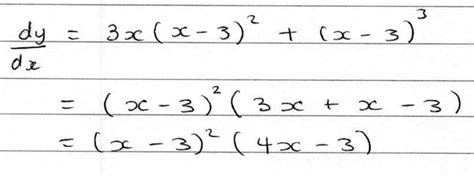 dy/dx = 3x(x-3)² + (x-3)³
= (x-3)²(3x + x - 3)
= (x-3)²(4x-3)